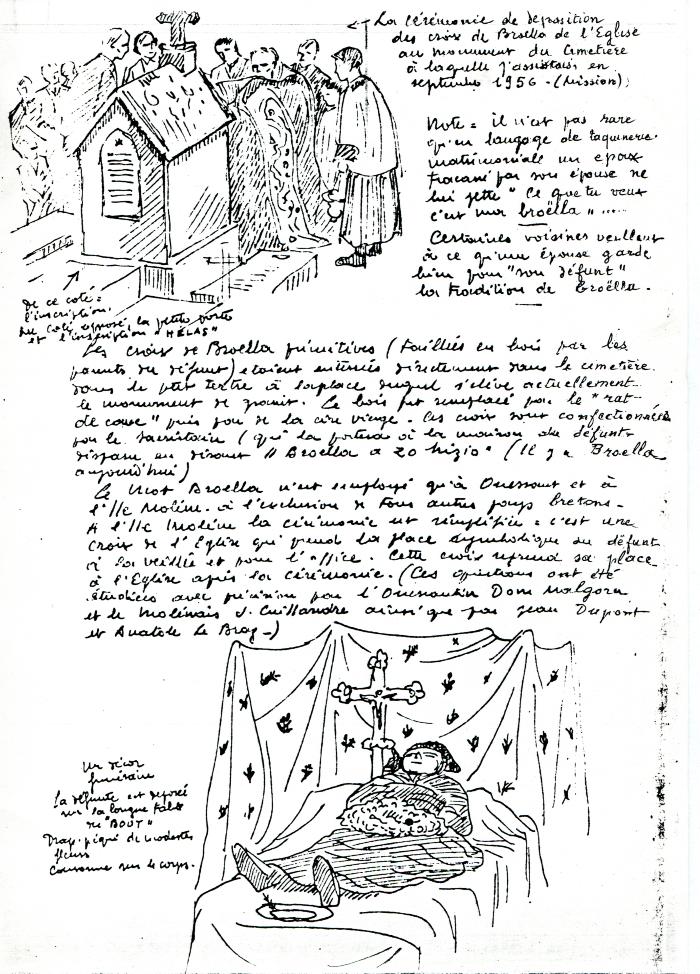 La cérémonie de déposition
des croix de Broella de l'Eglise
au monument du Cimetière
à laquelle j'assistais en
septembre 1956 - (Mission)
Note = il n'est pas rare
qu'en langage de taquinerie
matrimoniale un époux
tracassé par son épouse ne
lui jette " Ce que tu veux
c'est ma broëlla " .....
Certaines voisines veillent
à ce qu'une épouse garde
bien pour "son défunt"
la tradition de broëlla.
De ce coté :
l'inscription.
du coté opposé la petite porte
et l'inscription "HÉLAS"
Les croix de Broella primitives (taillées en bois par les
parents du défunt) étaient enterrées directement dans le cimetière
dans le petit tertre à la place duquel s'élève actuellement
le monument de granit. Le bois fut remplacé par le "rat-
de cave" puis par de la cire vierge. Ces croix sont confectionnées
par le sacristain (qui la portera à la maison du défunt
disparu en disant " Broella a zo hizio " (Il y a Broella
aujourd'hui)
Le mot Broella n'est employé qu'à Ouessant et à
l'Ile Molène. à l'exclusion de tous autres pays bretons -
A l'Ile Molène la cérémonie est simplifiée : c'est une
croix de l'Eglise qui prend la place symbolique du défunt
à la veillée et pour l'office. Cette croix reprend sa place
à l'Eglise après la cérémonie. (Ces questions ont été
étudiées avec précision par l'Ouessantin Dom Malgorn
et le Molénais J. Cuillandre ainsi que par Jean Dupont
et Anatole Le Braz -)
Un décor
funéraire
La défunte est déposée
sur la longue table
du "BOUT"
Drap piqué de modestes
fleurs
Couronne sur le corps.